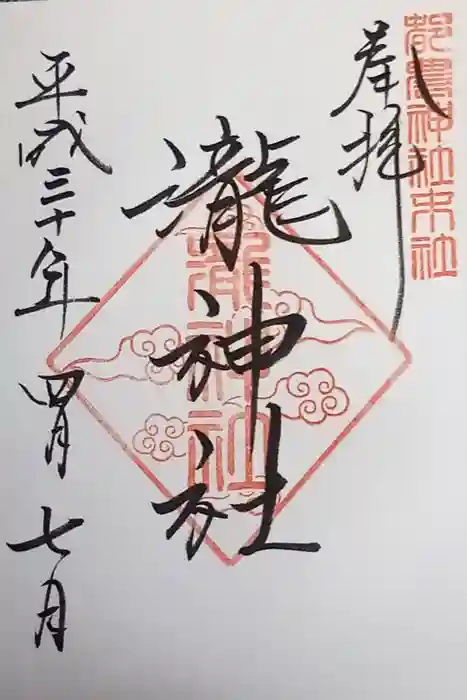 都農神社末社
奉拝
瀧神社
瀧神社
平成三十年 四月 七月